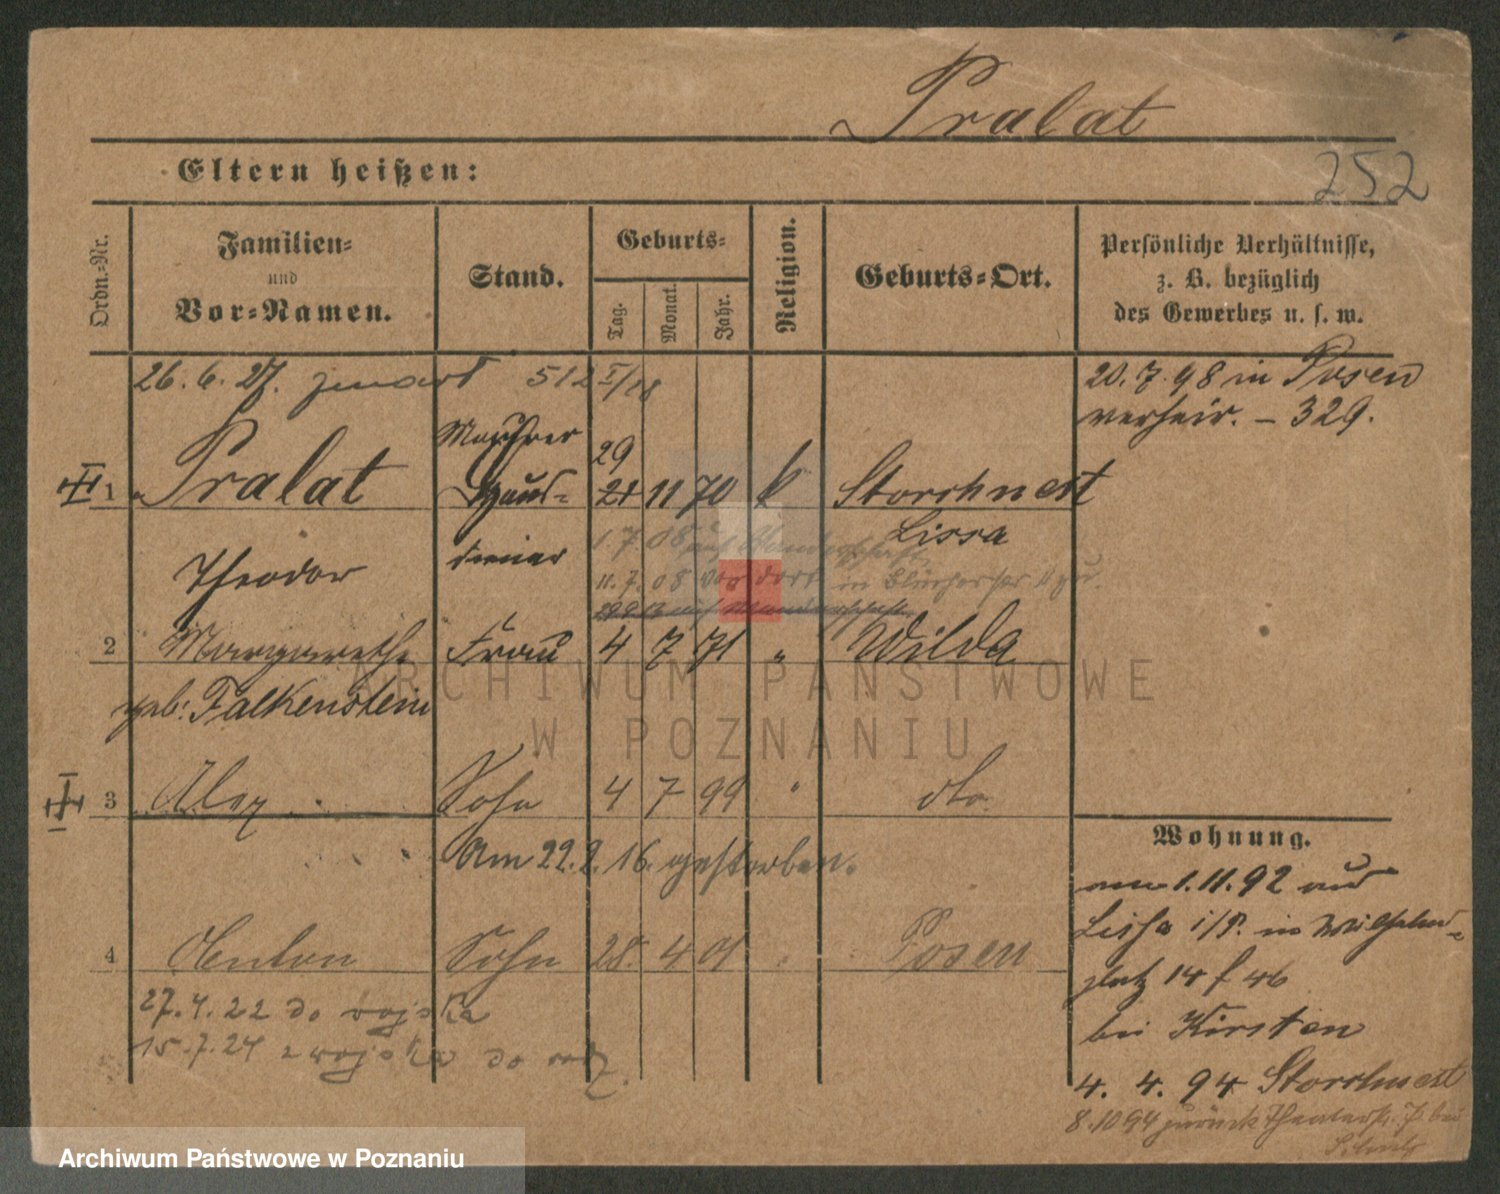 Pralat
Eltern heißen:
252
Ordn.-Nr.
Familien-
und
Vor-Namen.
Stand.
Geburts-
Tag.
Monat.
Jahr.
Religion.
Geburts-Ort.
Persönliche Verhältnisse,
z. B. bezüglich
des Gewerbes u. s. w.
26. 6. 27. zmarł 512 I/18
20. 7. 98 in Posen
verheir. – 329.
Maurer
29
1 Pralat Haus- 21 11 70 k Storchnest
Theodor diener Lissa
1. 7. 08 auf Wanderschaft
11. 7. 08 von dort in
2 Margarethe Frau 4 7 71 " Wilda
geb. Falkenstein
3 Alex Sohn 4 7 99 " dto.
Am 22. 2. 16. gestorben.
4 Anton Sohn 28. 4 01 Posen
27. 4. 22 do wojska
15. 7. 24 z wojska do
Wohnung.
am 1. 11. 92 aus
Lissa i/P. in Wilhelm-
platz 14 f 46
bei Kirsten
4. 4. 94 Storchnest
8. 10 94 zurück Theaterstr. 7. bei
ARCHIWUM PAŃSTWOWE
W POZNANIU
Archiwum Państwowe w Poznaniu